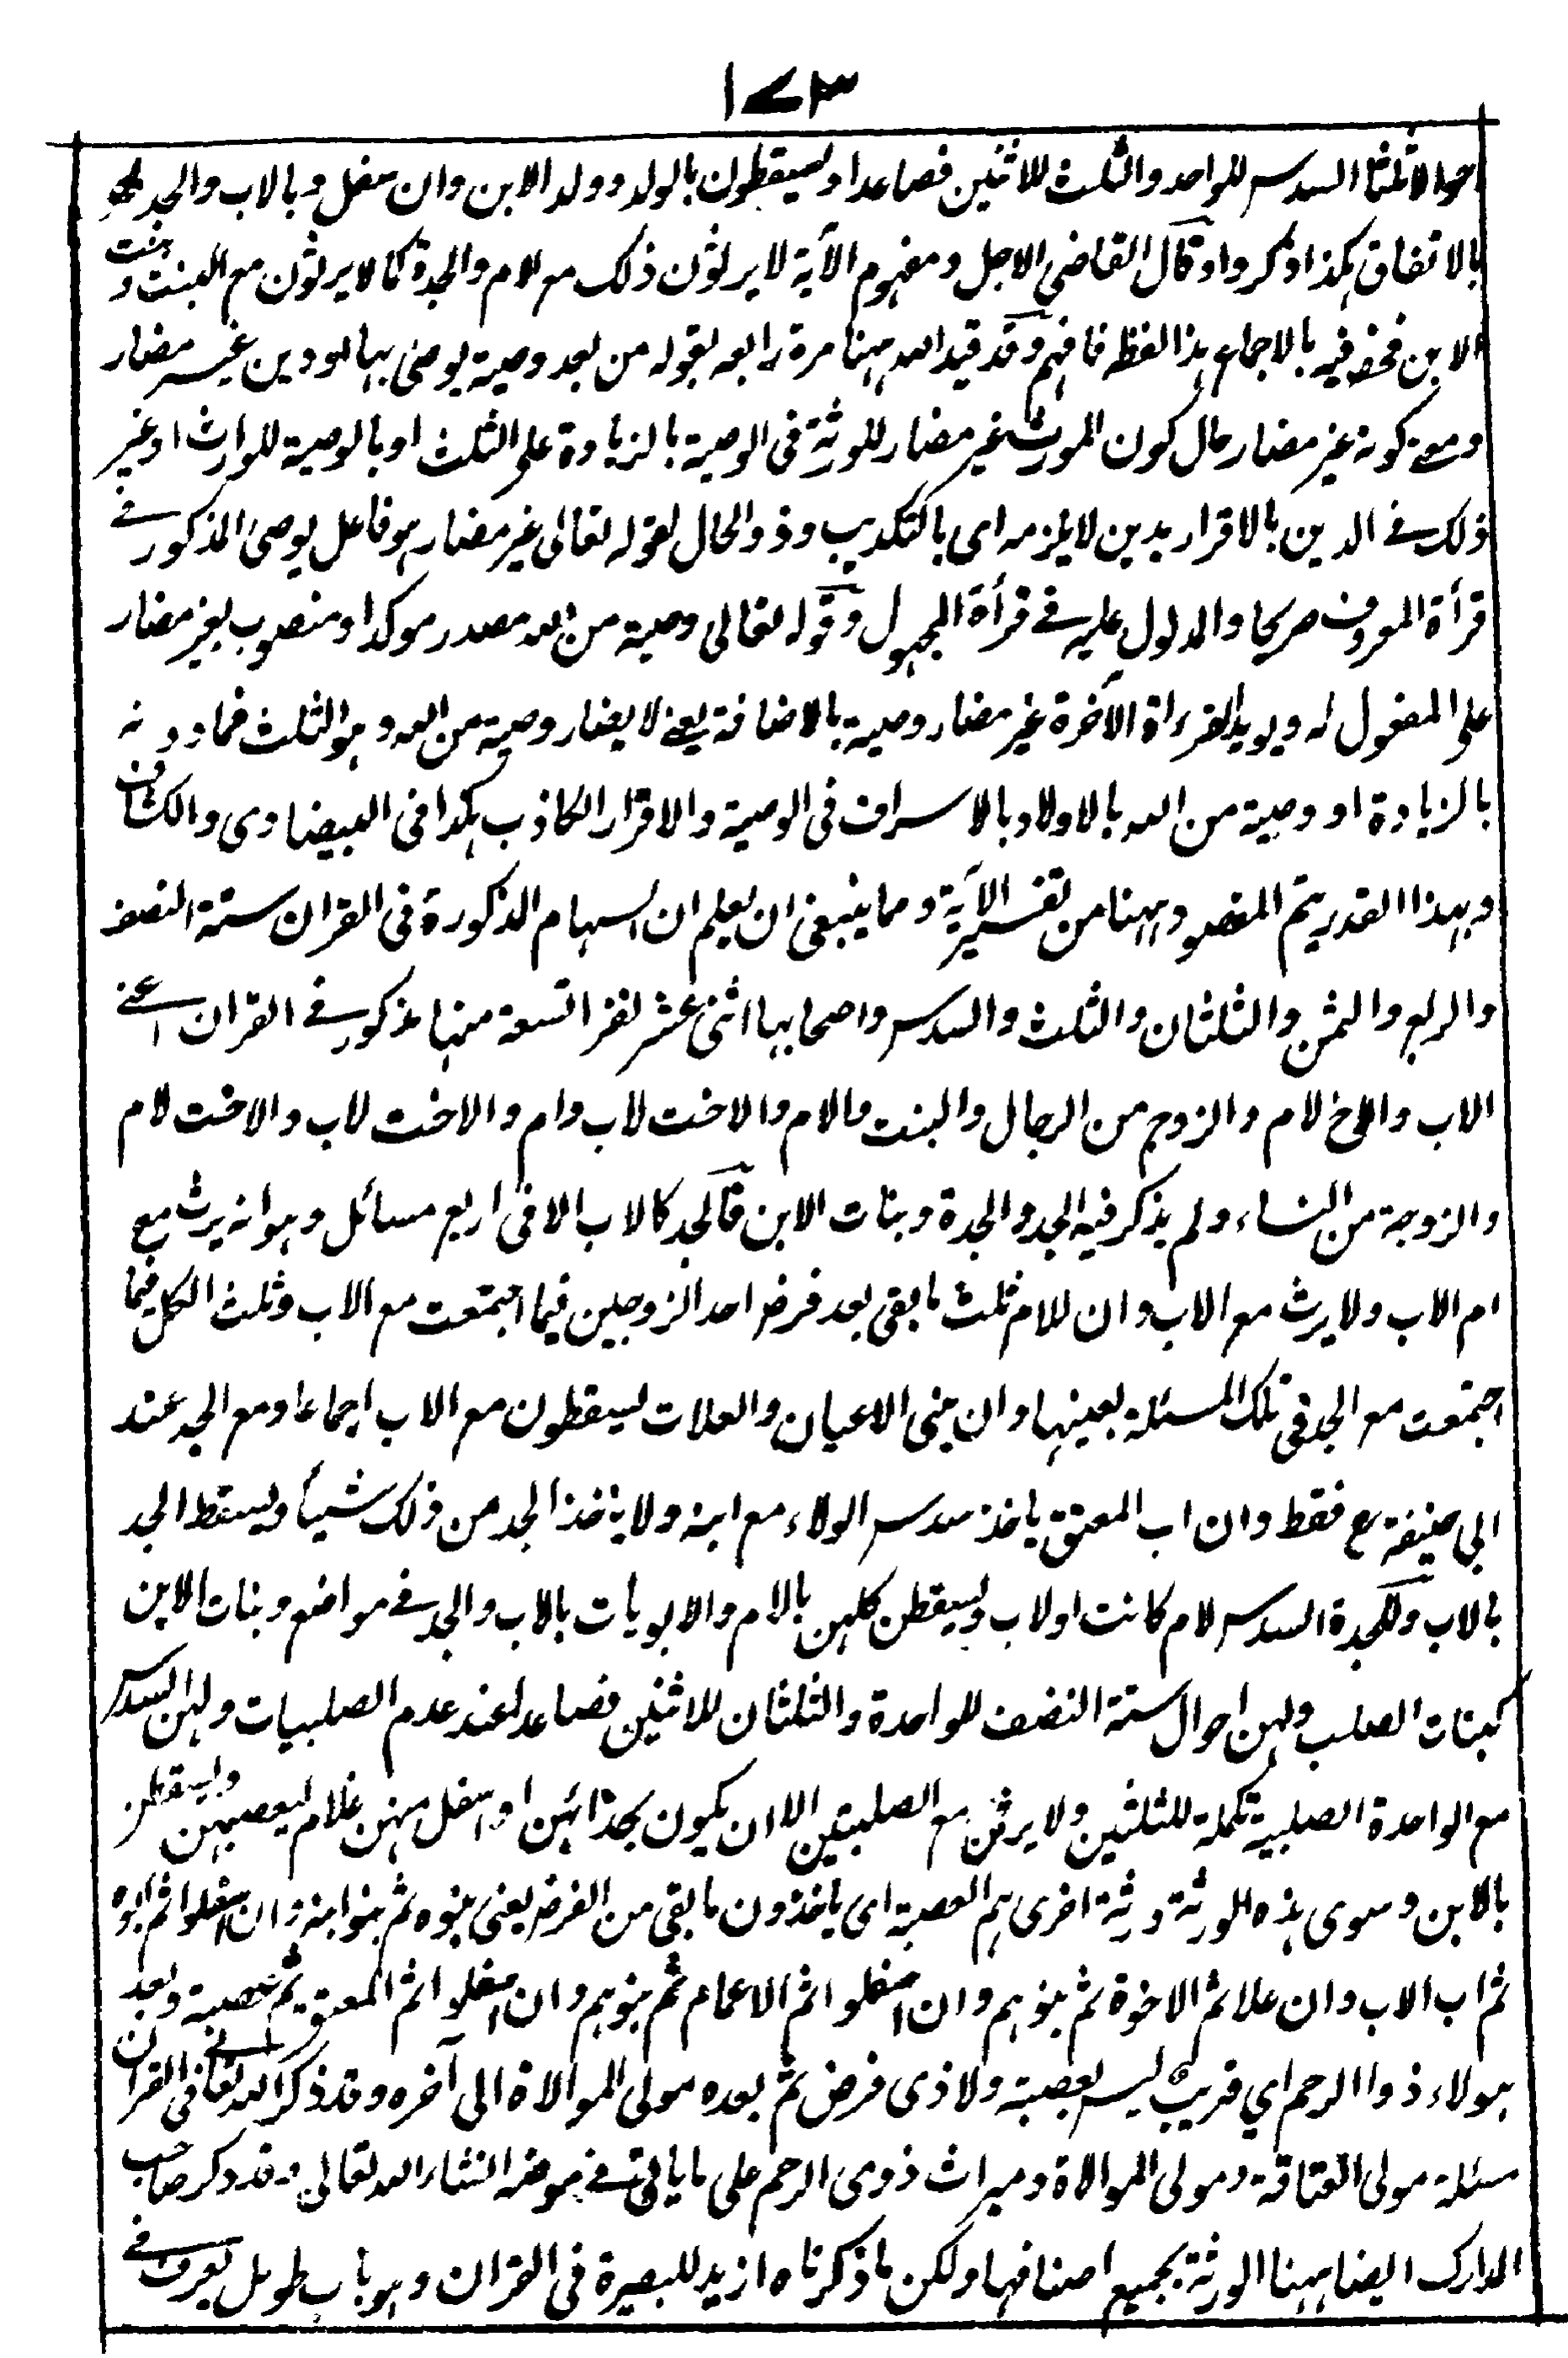 ١٧٣
احوالا ثلثا السدس للواحد والثلث للاثنين فصاعدا ويسقطون بالولد وولد الابن وان سفل وبالاب والجد
بالاتفاق هكذا ذكروا وقال القاضي الاجل ومفهوم الآية لا يرثون ذلك مع الام والجدة كما لا يرثون مع البنت وبنت
الابن فخص فيه بالاجماع هذا لفظه فافهم وقد قيد الله ههنا مرة رابعه بقوله من بعد وصية يوصى بها او دين غير مضار
ومعنى كونه غير مضار حال كون المورث غير مضار للورثة فى الوصية بالزيادة على الثلث او بالوصية للوارث او غير
ذلك فى الدين بالاقرار بدين لا يلزمه اى بالتكذيب وذو الحال لقوله تعالى غير مضار هو فاعل يوصى المذكور فى
قرأة المعروف صريحا والمدلول عليه فى قرأة المجهول وقوله تعالى وصية من الله مصدر موكد او منصوب بغير مضار
على المفعول له ويويد القراءة الآخرة غير مضار وصية بالاضافة يعنى لا يضار وصية من الله وهو الثلث فما دونه
بالزيادة او وصية من الله بالاولاد بالاسراف فى الوصية والاقرار الكاذب هكذا فى البيضاوى والكشاف
وبهذا القدر يتم المقصود ههنا من تفسير الآية ومما ينبغى ان يعلم ان السهام المذكورة فى القران ستة النصف
والربع والثمن والثلثان والثلث والسدس واصحابها اثنى عشر نفرا تسعة منها مذكور فى القران اعنى
الاب والاخ لام والزوج من الرجال والبنت والام والاخت لاب وام والاخت لاب والاخت لام
والزوجة من النساء ولم يذكر فيه الجد والجدة وبنات الابن فالجد كالاب الا فى اربع مسائل وهو انه يرث مع
ام الاب ولا يرث مع الاب وان للام ثلث ما بقى بعد فرض احد الزوجين فيما اجتمعت مع الاب وثلث الكل فيما
اجتمعت مع الجد فى تلك المسئلة بعينها وان بنى الاعيان والعلات يسقطون مع الاب اجماعا ومع الجد عند
ابي حنيفة رح فقط وان اب المعتق ياخذ سدس الولاء مع ابنه ولا ياخذ الجد من ذلك شيأ ويسقط الجد
بالاب وللجدة السدس لام كانت او لاب ويسقطن كلهن بالام والابويات بالاب والجد فى مواضع وبنات الابن
كبنات الصلب ولهن احوال ستة النصف للواحدة والثلثان للاثنين فصاعدا عند عدم الصلبيات ولهن السدس
مع الواحدة الصلبية تكملة للثلثين ولا يرثن مع الصلبيتين الا ان يكون بحذائهن او اسفل منهن غلام ليعصبهن ويسقطن
بالابن وسوى هذه الورثة ورثة اخرى هم العصبة اى ياخذون ما بقى من الفرض يعنى بنوه ثم بنوا ابنه وان سفلوا ثم ابوه
ثم اب الاب وان علا ثم الاخوة ثم بنوهم وان سفلوا ثم الاعمام ثم بنوهم وان سفلوا ثم المعتق ثم عصبته وبعد
هولاء ذوا الرحم اي قريب ليس بعصبة ولا ذى فرض ثم بعده مولى الموالاة الى آخره وقد ذكر الله تعالى فى القران
مسئلة مولى العتاقة ومولى الموالاة وميراث ذوى الرحم على ما ياتى فى موضعه انشاء الله تعالى وقد ذكر صاحب
المدارك ايضا ههنا الورثة بجميع اصنافها ولكن ما ذكرناه ازيد للبصيرة فى القران وهو باب طويل يعرف فى